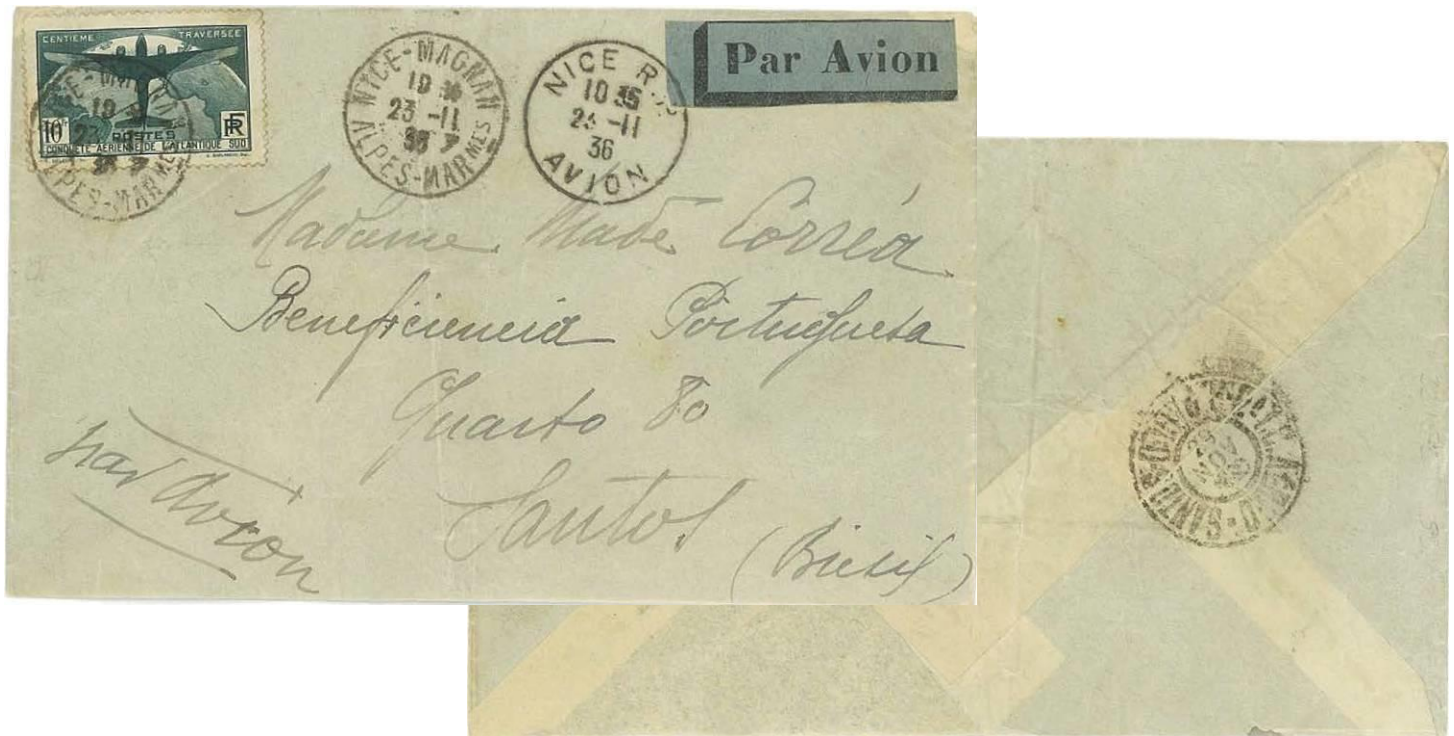 CENTIEME TRAVERSÉE
10F POSTES RF
CONQUÊTE AERIENNE DE L'ATLANTIQUE SUD
NICE-MAGNAN
19
23 -11
36
ALPES-MARMES
NICE-MAGNAN
19
23 -11
36
ALPES-MARMES
NICE R.P.
10 35
23 -11
36
AVION
Par Avion
Madame Made Corrêa
Beneficiencia Portuguesa
Quarto 80
Santos
(Brésil)
par Avion
SANTOS
NOV